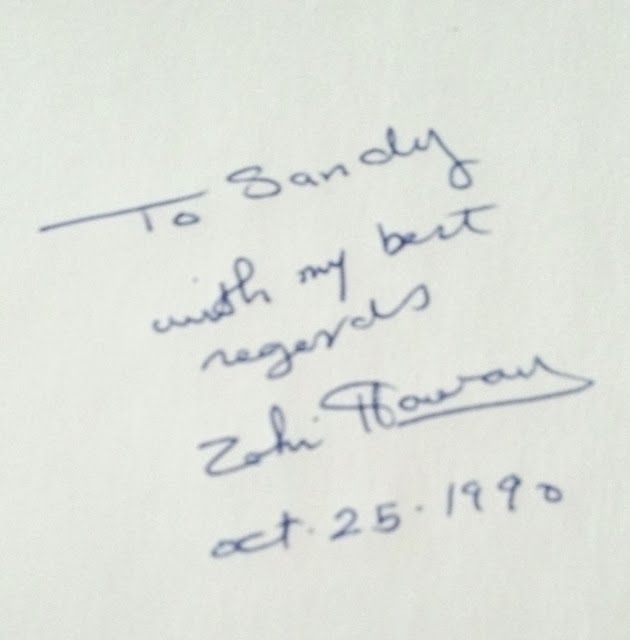 To Sandy
with my best
regards
Zahi Hawass
oct. 25. 1990